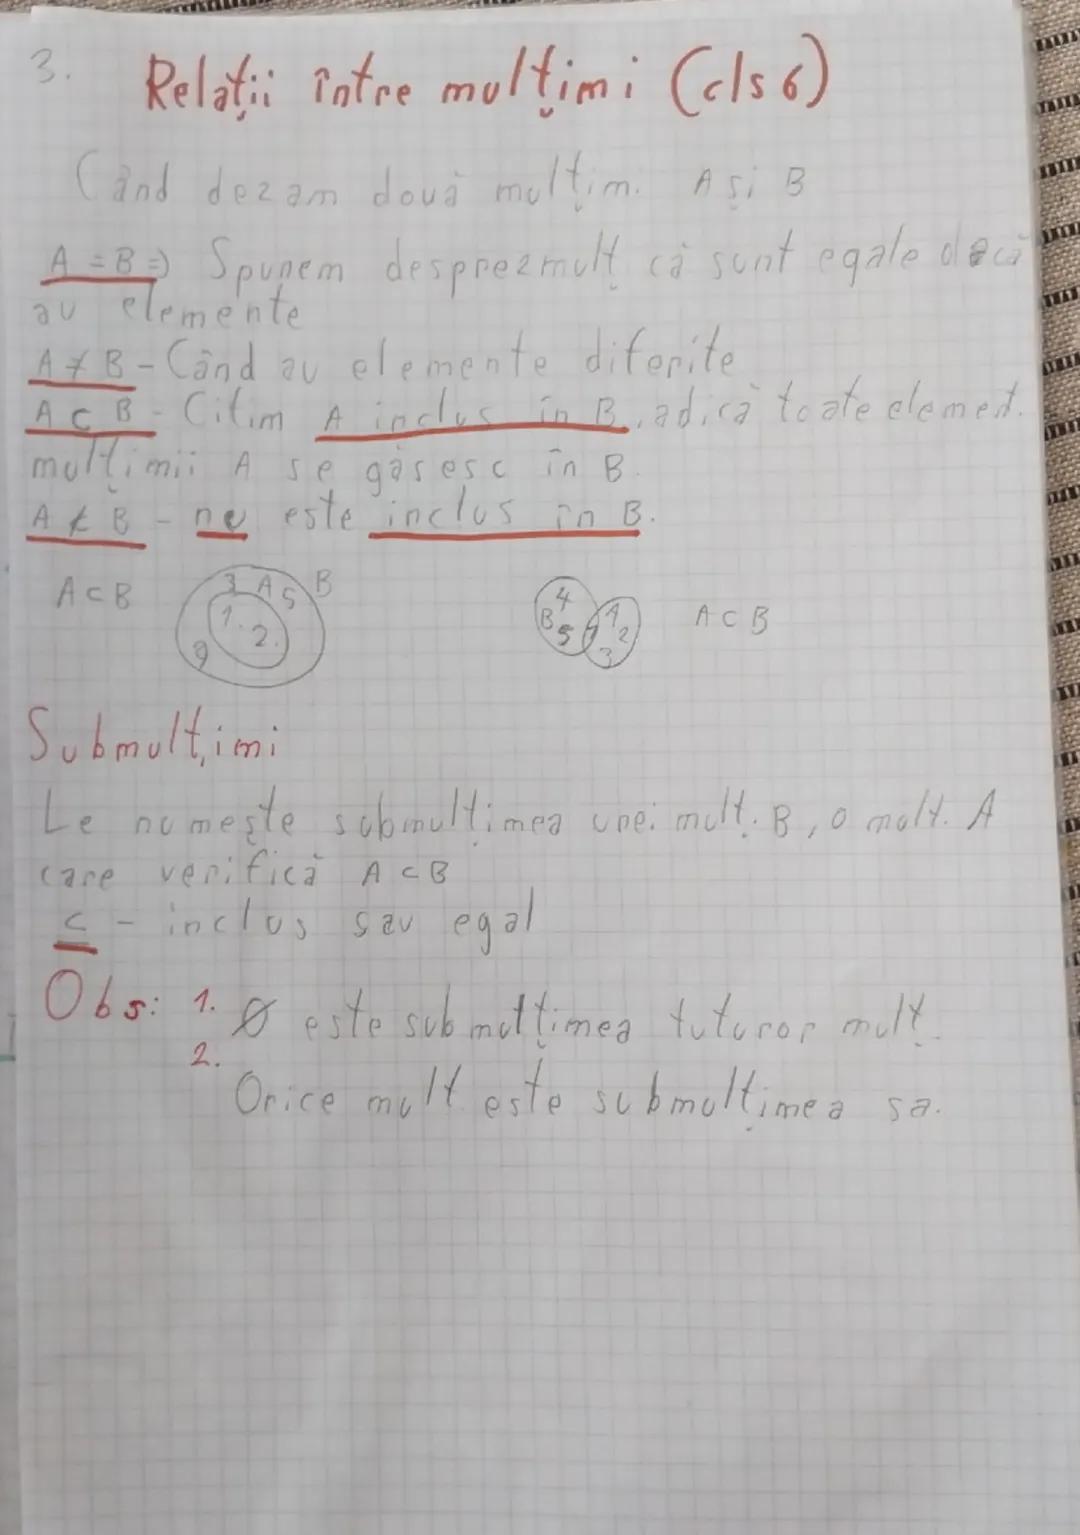 3. Relații între mulțimi (cls 6)
Când dezam două mulțim. A și B
A = B => Spunem despre 2 mulț că sunt egale dacă
au elemente
A ≠ B - Când au elemente diferite
A ⊂ B - Citim A inclus în B, adică toate element.
mulțimii A se găsesc în B.
A ⊄ B - nu este inclus în B.
A ⊂ B
3 A 5 B
1. 2.
9
4
B 5
1 2
3
A ⊂ B
Submulțimi
Le numește submulțimea unei mulț. B, o mult. A
care verifică A ⊂ B
⊆ - inclus sau egal
Obs: 1. Ø este submulțimea tuturor mulț.
2.
Orice mulț este submulțimea sa.